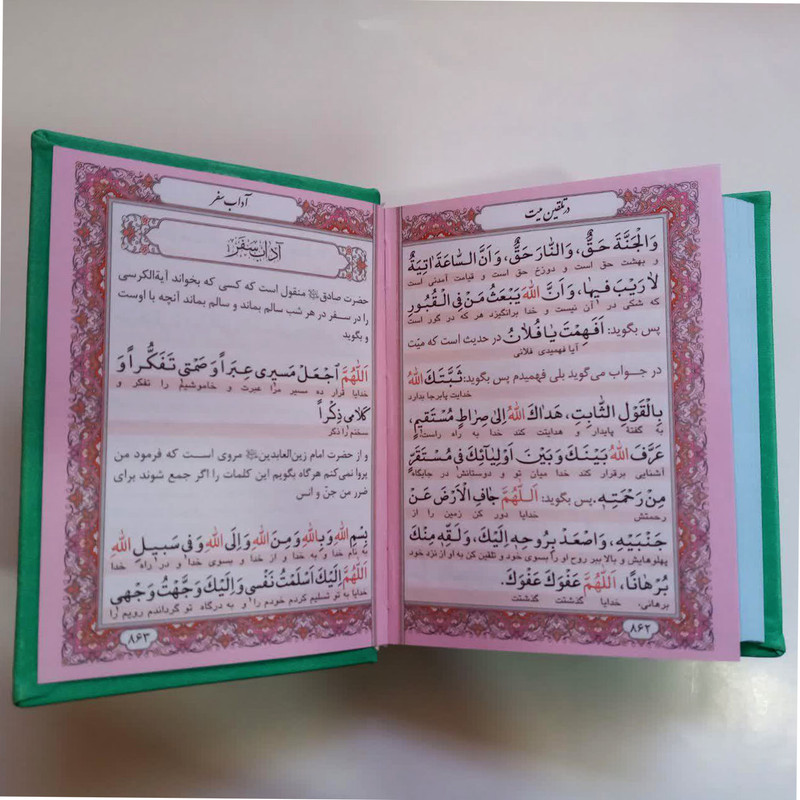 در تلقین میت
وَالْجَنَّةَ حَقٌّ، وَالنّارَ حَقٌّ، وَاَنَّ السّاعَةَ اتِيَةٌ
و بهشت حق است و دوزخ حق است و قیامت آمدنی است
لارَیْبَ فیها، وَاَنَّ اللهَ یَبْعَثُ مَنْ فِی الْقُبُورِ
که شکی در آن نیست و خدا برانگیزد هر که در گور است
پس بگوید: اَفَهِمْتَ یافُلانُ در حدیث است که میّت
آیا فهمیدی فلانی
در جواب می‌گوید بلی فهمیدم پس بگوید: ثَبَّتَكَ اللهُ
خدایت پابرجا بدارد
بِالْقَوْلِ الثّابِتِ، هَداكَ اللهُ اِلی صِراطٍ مُسْتَقیمٍ،
به گفتهٔ پایدار و هدایتت کند خدا به راه راست
عَرَّفَ اللهُ بَیْنَكَ وَبَیْنَ اَوْلِیائِكَ فی مُسْتَقَرٍّ
آشنایی برقرار کند خدا میان تو و دوستانش در جایگاه
مِنْ رَحْمَتِهِ. پس بگوید: اَللّهُمَّ جافِ الْاَرْضَ عَنْ
رحمتش خدایا دور کن زمین را از
جَنْبَیْهِ، وَاصْعَدْ بِرُوحِهِ اِلَیْكَ، وَلَقِّهِ مِنْكَ
پهلوهایش و بالا ببر روح او را بسوی خود و تلقین کن به او از نزد خود
بُرْهاناً، اَللّهُمَّ عَفْوَكَ عَفْوَكَ.
برهانی، خدایا گذشتت گذشتت
۸۶۲
آداب سفر
آداب سفر
حضرت صادق منقول است که کسی که بخواند آیةالکرسی
را در سفر در هر شب سالم بماند و سالم بماند آنچه با اوست
و بگوید
اَللّهُمَّ اجْعَلْ مَسیری عِبَراً وَصَمْتی تَفَكُّراً وَ
خدایا قرار ده مسیر مرا عبرت و خاموشیم را تفکر و
كَلامی ذِكْراً
سخنم را ذکر
و از حضرت امام زین‌العابدین مروی است که فرمود من
پروا نمی‌کنم هرگاه بگویم این کلمات را اگر جمع شوند برای
ضرر من جنّ و انس
بِسْمِ اللهِ وَبِاللهِ وَمِنَ اللهِ وَاِلَی اللهِ وَفی سَبیلِ اللهِ
به نام خدا و به خدا و از خدا و بسوی خدا و در راه خدا
اَللّهُمَّ اِلَیْكَ اَسْلَمْتُ نَفْسی وَاِلَیْكَ وَجَّهْتُ وَجْهی
خدایا به تو تسلیم کردم خودم را و به درگاه تو گرداندم رویم را
۸۶۳